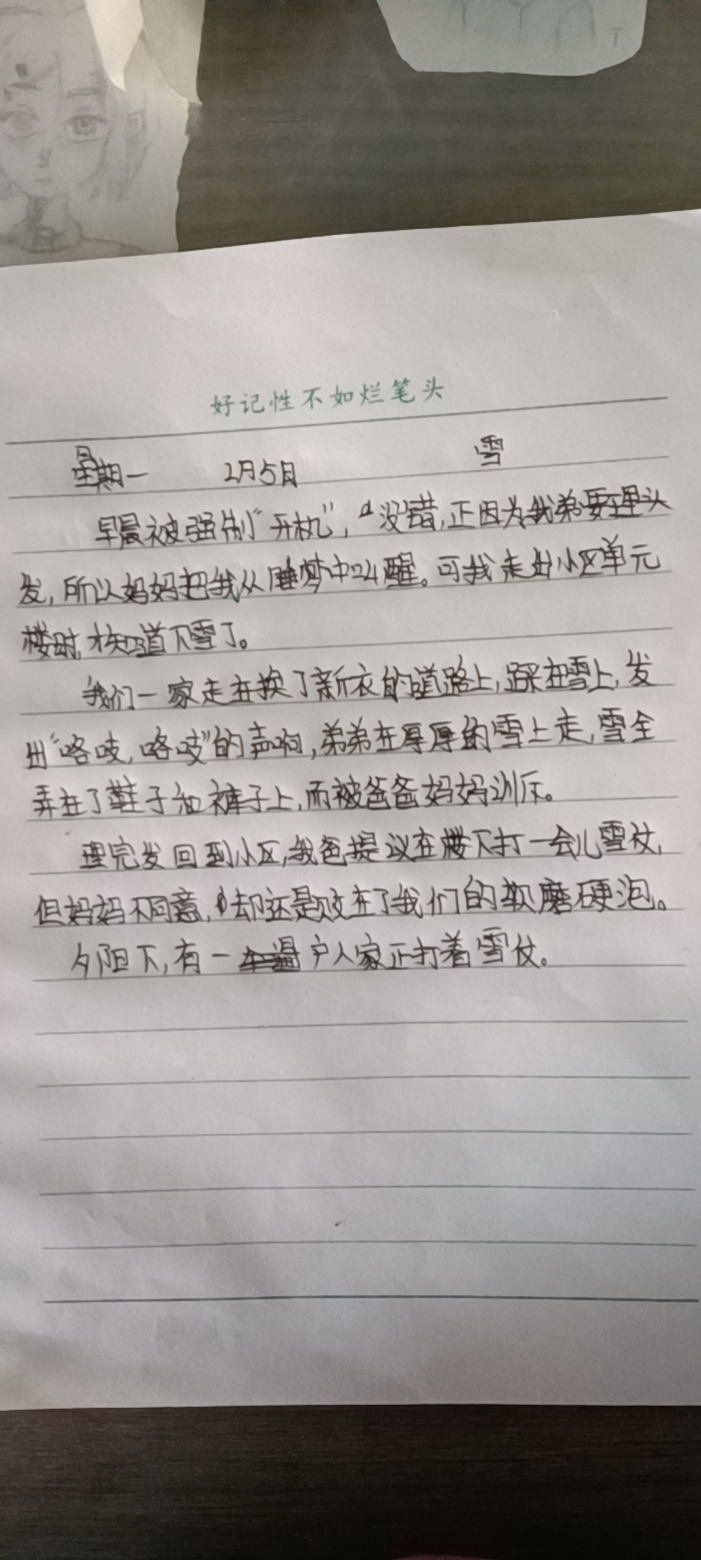 好记性不如烂笔头
星期一 2月5日 雪
早晨被强制“开机”，没错，正因为我弟要理头
发，所以妈妈把我从睡梦中叫醒。可我走出小区单元
楼时，才知道下雪了。
我们一家走在换了新衣的道路上，踩在雪上，发
出“咯吱，咯吱”的声响，弟弟在厚厚的雪上走，雪全
弄在了鞋子和裤子上，而被爸爸妈妈训斥。
理完发回到小区，我爸提议在楼下打一会儿雪仗，
但妈妈不同意，却还是败在了我们的软磨硬泡。
夕阳下，有一户人家正打着雪仗。